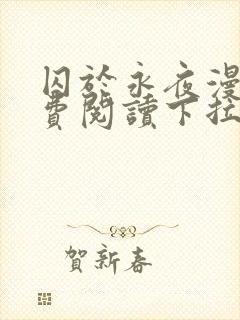 囚於永夜漫
費閱讀下拉
賀新春